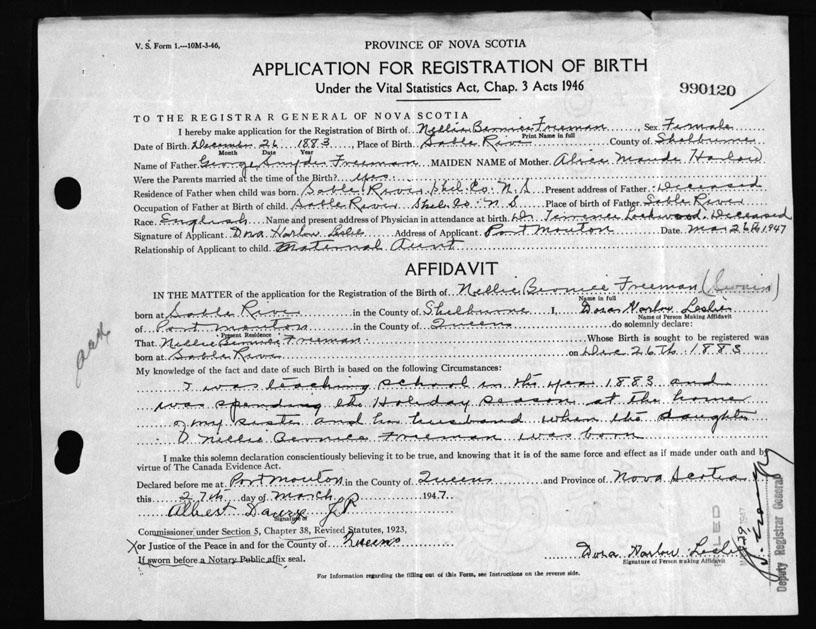 V. S. Form 1.—10M-3-46,
PROVINCE OF NOVA SCOTIA
APPLICATION FOR REGISTRATION OF BIRTH
Under the Vital Statistics Act, Chap. 3 Acts 1946
990120
TO THE REGISTRAR GENERAL OF NOVA SCOTIA
I hereby make application for the Registration of Birth of Nellie Bernice Freeman, Sex Female
Print Name in full
Date of Birth December 26 1883 Place of Birth Sable River County of Shelburne
Month Date Year
Name of Father George Snyder Freeman MAIDEN NAME of Mother Alice Maude Harlow
Were the Parents married at the time of the Birth? yes
Residence of Father when child was born Sable River Shel. Co. N. S Present address of Father Deceased
Occupation of Father at Birth of child Sable River Shel. Co. N. S Place of birth of Father Sable River
Race English Name and present address of Physician in attendance at birth Dr. Lockwood. Deceased
Signature of Applicant Dora Harlow Leslie Address of Applicant Port Mouton Date Mar 26th 1947
Relationship of Applicant to child Maternal Aunt
AFFIDAVIT
IN THE MATTER of the application for the Registration of the Birth of Nellie Bernice Freeman (Swain)
Name in full
born at Sable River in the County of Shelburne I, Dora Harlow Leslie
Name of Person Making Affidavit
of Port Mouton in the County of Queens do solemnly declare:
Present Residence
That Nellie Bernice Freeman Whose Birth is sought to be registered was
born at Sable River on Dec 26th 1883
My knowledge of the fact and date of such Birth is based on the following Circumstances:
I was teaching school in the year 1883 and
was spending the Holiday season at the home
of my sister and her husband when the daughter
Nellie Bernice Freeman was born
I make this solemn declaration conscientiously believing it to be true, and knowing that it is of the same force and effect as if made under oath and by
virtue of The Canada Evidence Act.
Declared before me at Port Mouton in the County of Queens and Province of Nova Scotia
this 27th day of March 1947.
Albert J P
Signature of
Commissioner under Section 5, Chapter 38, Revised Statutes, 1923,
X or Justice of the Peace in and for the County of Queens
If sworn before a Notary Public affix seal.
Dora Harlow Leslie
Signature of Person making Affidavit
For Information regarding the filling out of this Form, see Instructions on the reverse side.
FILED
Deputy Registrar General